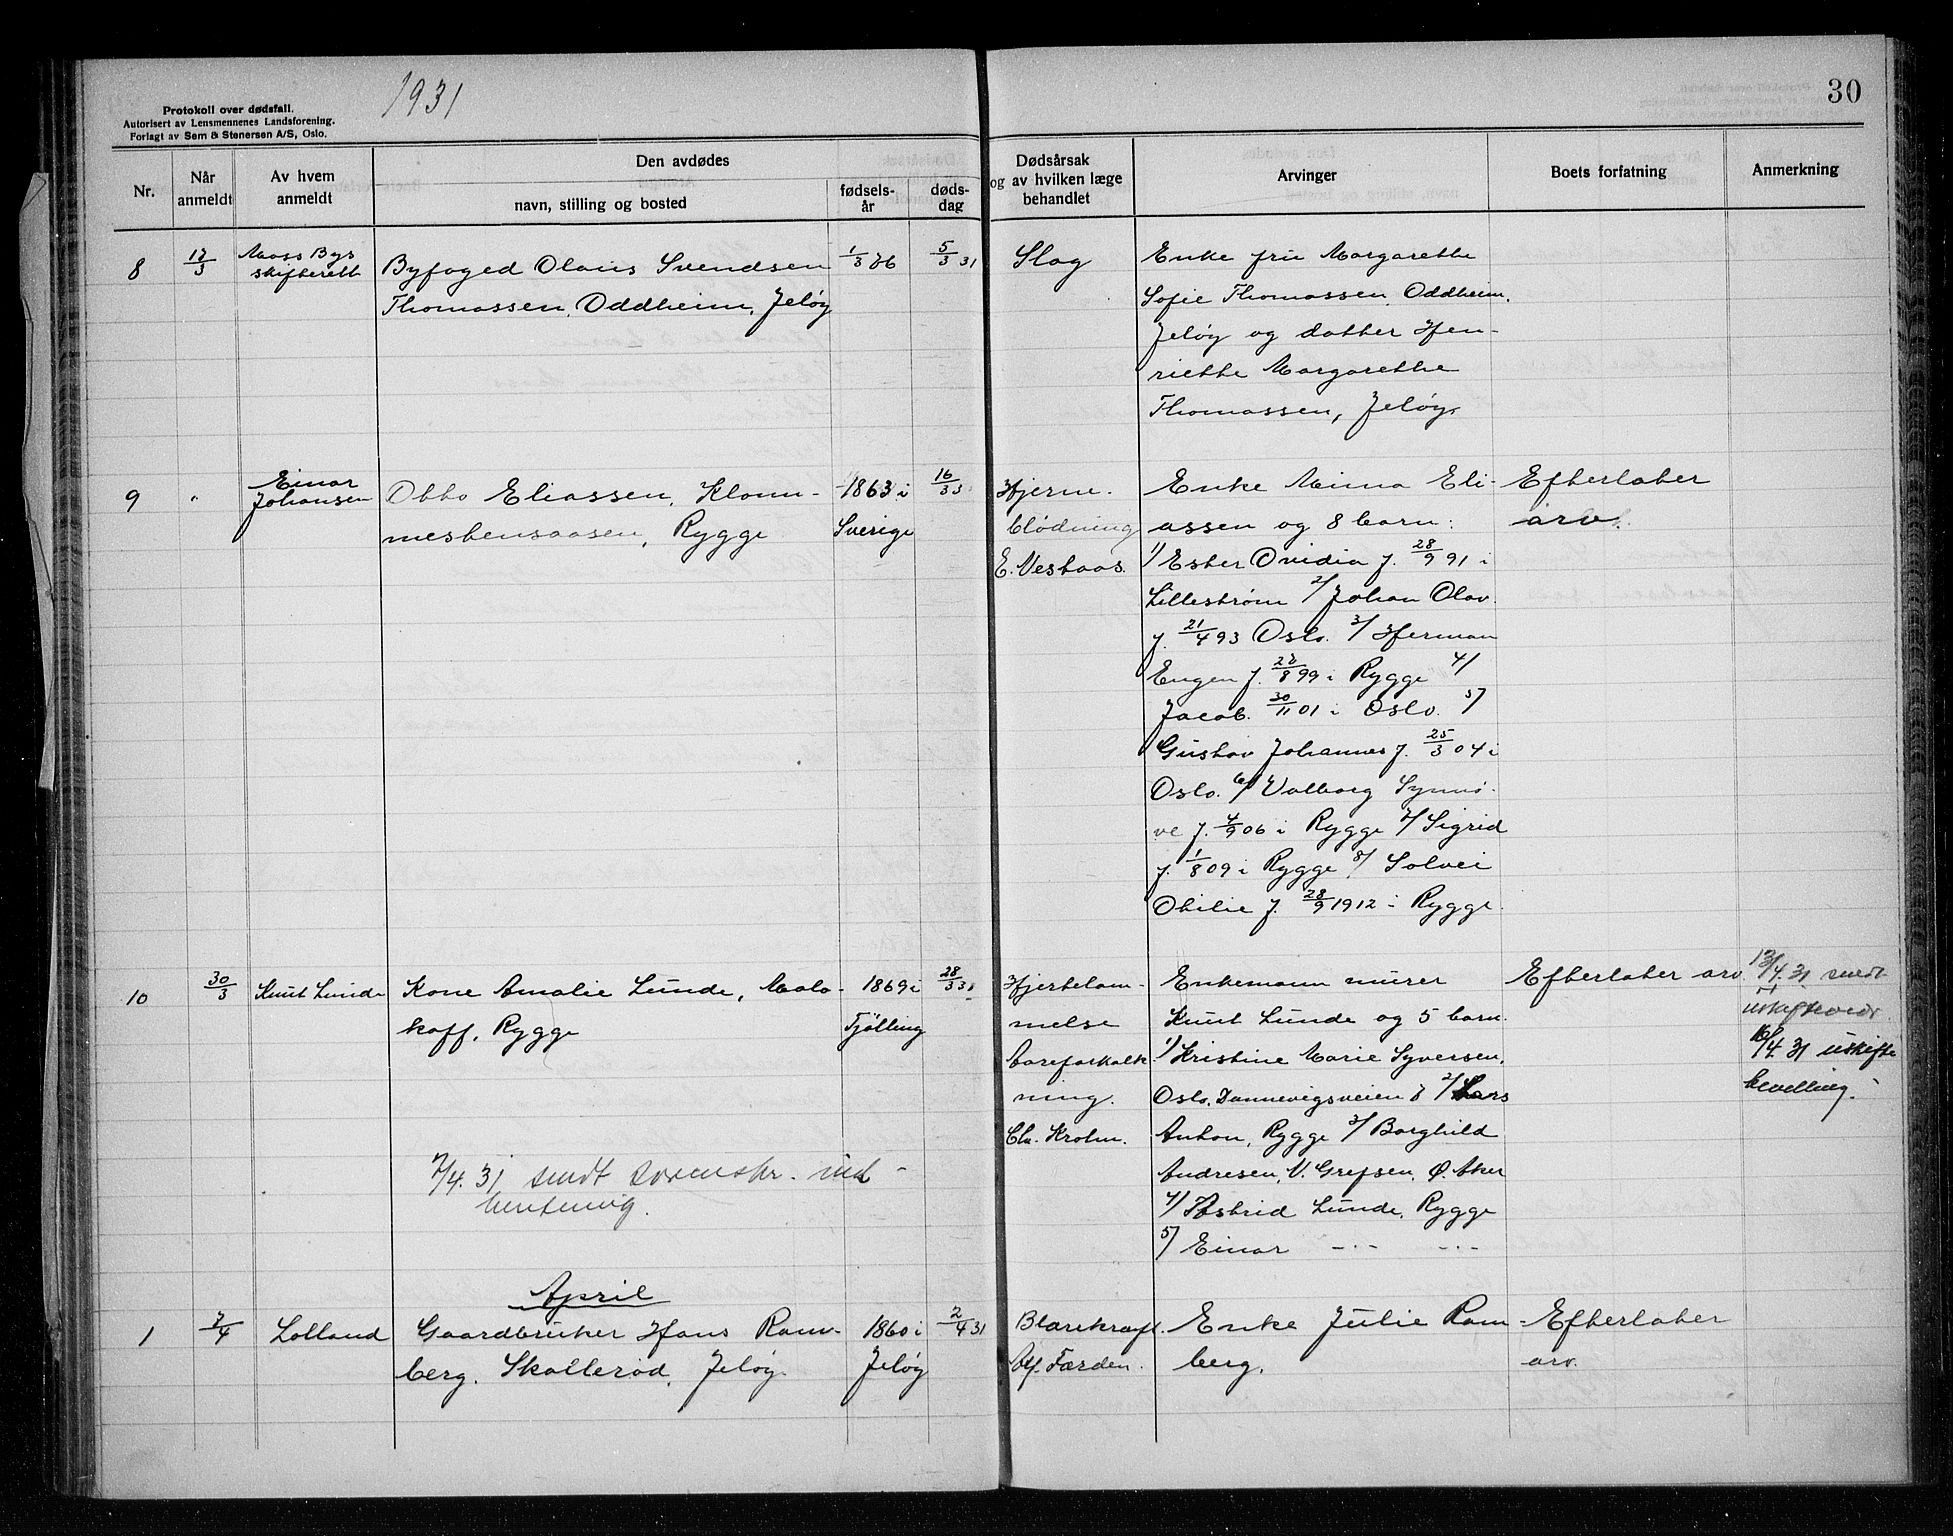 1931
30
Protokoll over dødsfall.
Autorisert av Lensmennenes Landsforening.
Forlagt av Sem & Stenersen A/S, Oslo.
Nr.
Når anmeldt
Av hvem anmeldt
Den avdødes
navn, stilling og bosted
fødsels-år
døds-dag
Dødsårsak
og av hvilken læge
behandlet
Arvinger
Boets forfatning
Anmerkning
8
Moss Bys
skifterett
Byfoged Olaus Svendsen
Thomassen, Oddheim, Jeløy
5/3 31
Slag
Enke fru Margarethe
Sofie Thomassen, Oddheim,
Jeløy og datter Hen-
riette Margarethe
Thomassen, Jeløy.
9
"
Einar
Johansen
Otto Eliassen, Klom-
mestensaasen, Rygge
1863 i
Sverige
16/3 31
Hjerne-
blødning
E. Vestaas.
Enke Minna Eli-
assen og 8 barn:
1/ Ester Ovidia f. 28/9 91 i
Lillestrøm 2/ Johan Olav
f. 21/4 93 Oslo. 3/ Herman
Eugen f. /8 99 i Rygge 4/
Jacob. 30/11 01 i Oslo. 5/
Gustav Johannes f. 25/3 04 i
Oslo. 6/ Valborg Synnø-
ve f. 4/9 06 i Rygge 7/ Sigrid
f. 1/8 09 i Rygge 8/ Solvei
Otilie f. 28/9 1912 i Rygge.
Efterlater
arv.
10
30/3
Knut Lunde
Kone Amalie Lunde, Mala-
koff, Rygge
1869 i
Tjølling
28/3 31
Hjertelam-
melse
Aareforkalk
ning.
Chr. Krohn.
Enkemann murer
Knut Lunde og 5 barn.
1/ Kristine Marie Syversen,
Oslo, Dannevigsveien 8 2/ Lars
Anton, Rygge 3/ Borghild
Andresen, V. Grefsen, Ø. Aker
4/ Astrid Lunde, Rygge
5/ Einar -"- -"-
Efterlater arv.
13/4. 31 sendt
uskifte
bevilling.
7/4. 31 sendt sorenskr. ind-
hentning.
April
1
7/4
Lolland
Gaardbruker Hans Ram-
berg, Skallerød, Jeløy.
1860 i
Jeløy
2/4 31
Blærekræft.
Alf. Færden.
Enke Julie Ram-
berg.
Efterlater
arv.